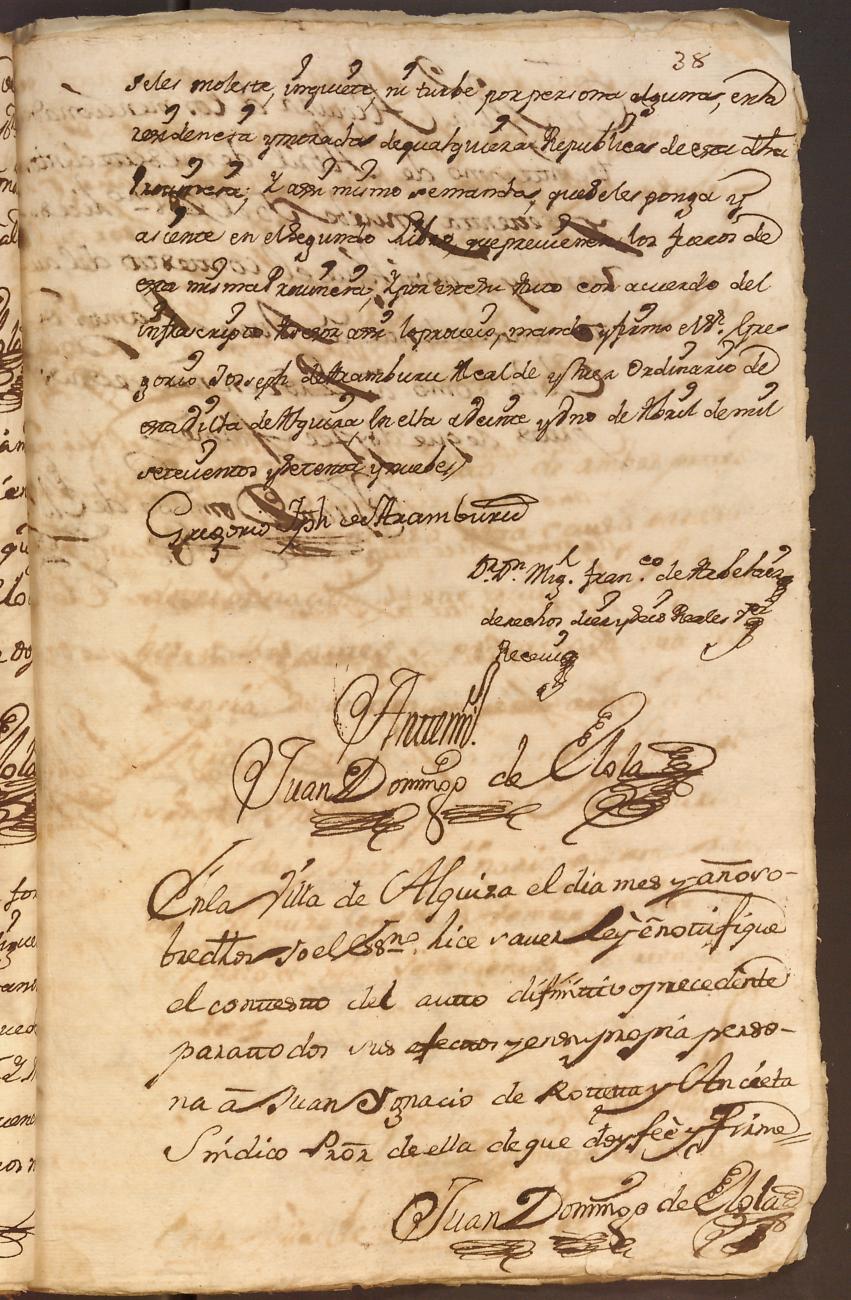 38
seles moleste, inquiete, ni turbe por persona alguna, en la
residencia y moradas de qualquiera Republicas de esta dtha
Provincia; Y assi mismo se manda, que se les ponga y
asiente en el segundo libro, que previenen los fueros de
esta misma Provincia; Y por este su Auto con acuerdo del
infrascripto Asesor assi lo proveio, mando y firmo el Sr. Gre-
gorio Joseph de Aramburu Alcalde y Juez Ordinario de
esta Villa de Alquiza en ella a Veinte y Uno de Abril de mil
setecientos y setenta y nuebe
Gregorio Jph de Aramburu
Dr. Dn. Migl. Franco. de
derechos diez y seis Reales
Recevi
Antemi.
Juan Domingo de Elola
En la Villa de Alquiza el dia mes y año so-
bredthos yo el Ssno. hice saver leŷ è notifique
el contesto del autto difinitivo precedente
para ttodos sus efectos y en su propia perso-
na â Juan Ygnacio de Rotetta y Ancieta
Sindico Pror de ella de que doy feè y firme
Juan Domingo de Elola